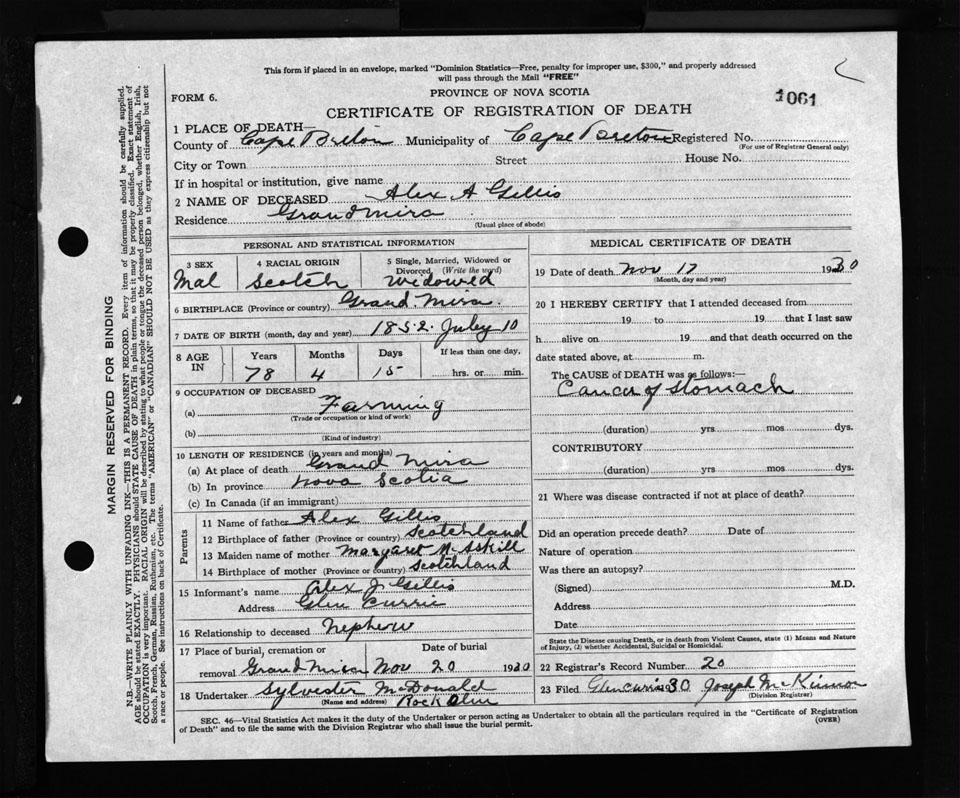 This form if placed in an envelope, marked "Dominion Statistics—Free, penalty for improper use, $300," and properly addressed
will pass through the Mail "FREE"
FORM 6.
PROVINCE OF NOVA SCOTIA
1061
CERTIFICATE OF REGISTRATION OF DEATH
1 PLACE OF DEATH—
County of Cape Breton Municipality of Cape Breton Registered No.
(For use of Registrar General only)
City or Town Street House No.
If in hospital or institution, give name
2 NAME OF DECEASED Alex A Gillis
Residence Grand Mira
(Usual place of abode)
PERSONAL AND STATISTICAL INFORMATION
3 SEX 4 RACIAL ORIGIN 5 Single, Married, Widowed or
Divorced, (Write the word)
Mal Scotch Widowed
6 BIRTHPLACE (Province or country) Grand Mira.
7 DATE OF BIRTH (month, day and year) 1852. July 10
8 AGE IN Years Months Days If less than one day,
78 4 15 hrs. or min.
9 OCCUPATION OF DECEASED
(a) Farming
(Trade or occupation or kind of work)
(b)
(Kind of industry)
10 LENGTH OF RESIDENCE (in years and months)
(a) At place of death Grand Mira
(b) In province Nova Scotia
(c) In Canada (if an immigrant)
Parents
11 Name of father Alex Gillis
12 Birthplace of father (Province or country) Scotchland
13 Maiden name of mother Margaret McAskill
14 Birthplace of mother (Province or country) Scotchland
15 Informant's name Alex J Gillis
Address Glen Currie
16 Relationship to deceased Nephew
17 Place of burial, cremation or Date of burial
removal Grand Mira Nov 20 1930
18 Undertaker Sylvester McDonald
(Name and address) Rock
MEDICAL CERTIFICATE OF DEATH
19 Date of death Nov 17 1930
(Month, day and year)
20 I HEREBY CERTIFY that I attended deceased from
19 to 19 that I last saw
h alive on 19 and that death occurred on the
date stated above, at m.
The CAUSE OF DEATH was as follows:—
Cancer of Stomach
(duration) yrs mos dys.
CONTRIBUTORY
(duration) yrs mos dys.
21 Where was disease contracted if not at place of death?
Did an operation precede death? Date of
Nature of operation
Was there an autopsy?
(Signed) M.D.
Address
Date
State the Disease causing Death, or in death from Violent Causes, state (1) Means and Nature
of Injury, (2) whether Accidental, Suicidal or Homicidal.
22 Registrar's Record Number 20
23 Filed Glencurrie 30 Joseph McKinnon
(Division Registrar)
SEC. 46—Vital Statistics Act makes it the duty of the Undertaker or person acting as Undertaker to obtain all the particulars required in the "Certificate of Registration
of Death" and to file the same with the Division Registrar who shall issue the burial permit.
(OVER)
MARGIN RESERVED FOR BINDING
N.B.—WRITE PLAINLY WITH UNFADING INK—THIS IS A PERMANENT RECORD. Every item of information should be carefully supplied.
AGE should be stated EXACTLY. PHYSICIANS should STATE CAUSE OF DEATH in plain terms, so that it may be properly classified. Exact statement of
OCCUPATION is very important. RACIAL ORIGIN will be described by stating to what people or tongue the deceased person belonged, whether English, Irish,
Scotch, French, German, Russian, Ruthenian, etc. The terms "AMERICAN" or "CANADIAN" SHOULD NOT BE USED as they express citizenship but not
a race or people. See instructions on back of Certificate.